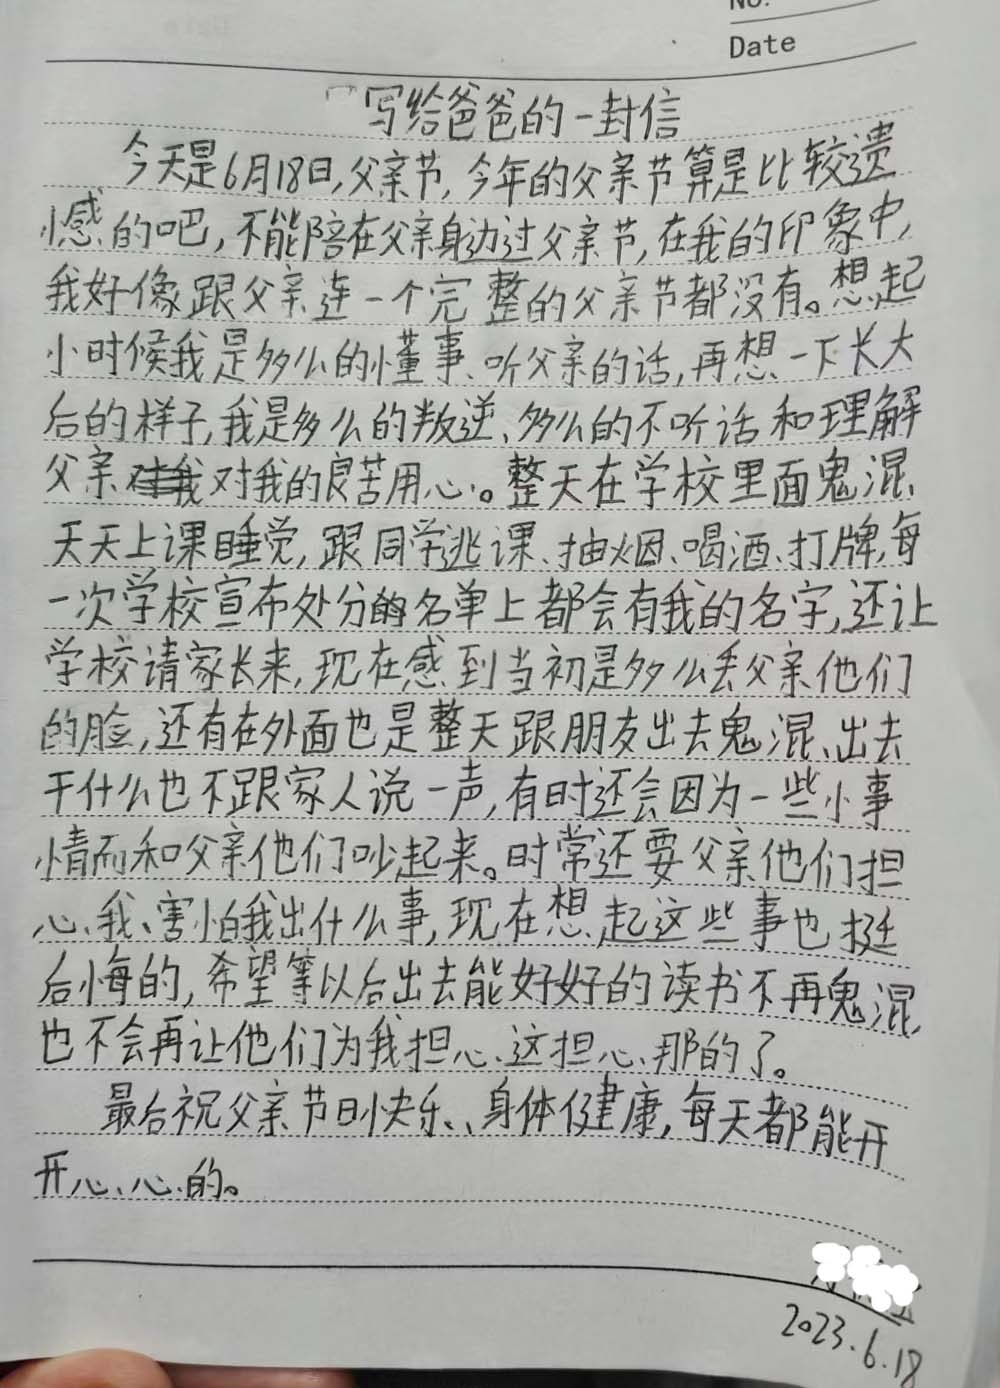 No.
Date
写给爸爸的一封信
今天是6月18日,父亲节,今年的父亲节算是比较遗
憾的吧,不能陪在父亲身边过父亲节,在我的印象中,
我好像跟父亲连一个完整的父亲节都没有。想起
小时候我是多么的懂事、听父亲的话,再想一下长大
后的样子,我是多么的叛逆、多么的不听话和理解
父亲对我对我的良苦用心。整天在学校里面鬼混,
天天上课睡觉,跟同学逃课、抽烟、喝酒、打牌,每
一次学校宣布处分的名单上都会有我的名字,还让
学校请家长来,现在感到当初是多么丢父亲他们
的脸,还有在外面也是整天跟朋友出去鬼混、出去
干什么也不跟家人说一声,有时还会因为一些小事
情而和父亲他们吵起来。时常还要父亲他们担
心我、害怕我出什么事,现在想起这些事也挺
后悔的,希望等以后出去能好好的读书不再鬼混,
也不会再让他们为我担心这担心那的了。
最后祝父亲节日快乐、身体健康,每天都能开
开心心的。
2023.6.18